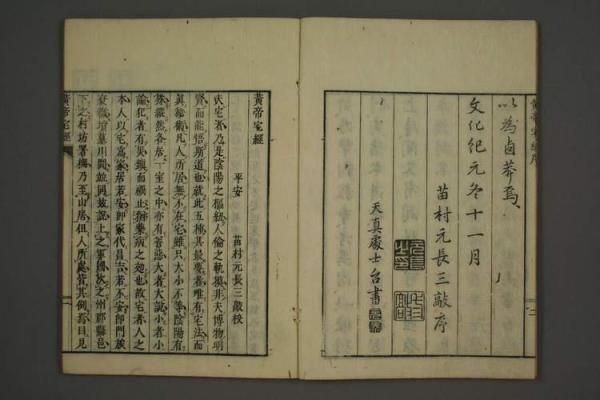 黃帝宅經序
以為鹵莽焉
文化紀元冬十一月
苗村元長三敲序
天真處士台書
黃帝宅經
平安 苗村元長三敲校
夫宅者乃是陰陽之樞紐人倫之軌模非夫博物明
賢而能悟斯道也就此五種其最要者唯有宅法而
真秘術凡人所居無不在宅雖只大小不等陰陽有
殊縱然客居一室之中亦有善惡大者大說小者小
論犯者有災鎮而禍止猶藥病之効也故宅者人之
本人以宅為家居若安即家代昌吉若不安即門族
衰微墳墓川岡並同茲說上之軍國次及州郡縣邑
下之村坊署柵乃至山居但人所處皆其例焉目見
黃帝宅經